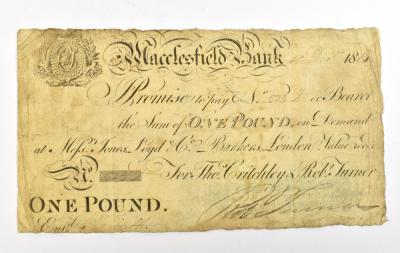 Macclesfield Bank
Promise to pay or Bearer
the Sum of ONE POUND on Demand
at Messrs. Jones, Loyd & Co. Bankers, London Value recd
No. For Thos. Critchley & Robt. Turner
ONE POUND.
Entd.